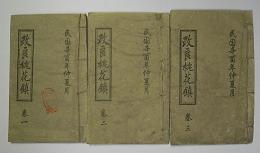 民國辛酉年仲夏月
改良桃花鎮
卷一
民國辛酉年仲夏月
改良桃花鎮
卷二
民國辛酉年仲夏月
改良桃花鎮
卷三